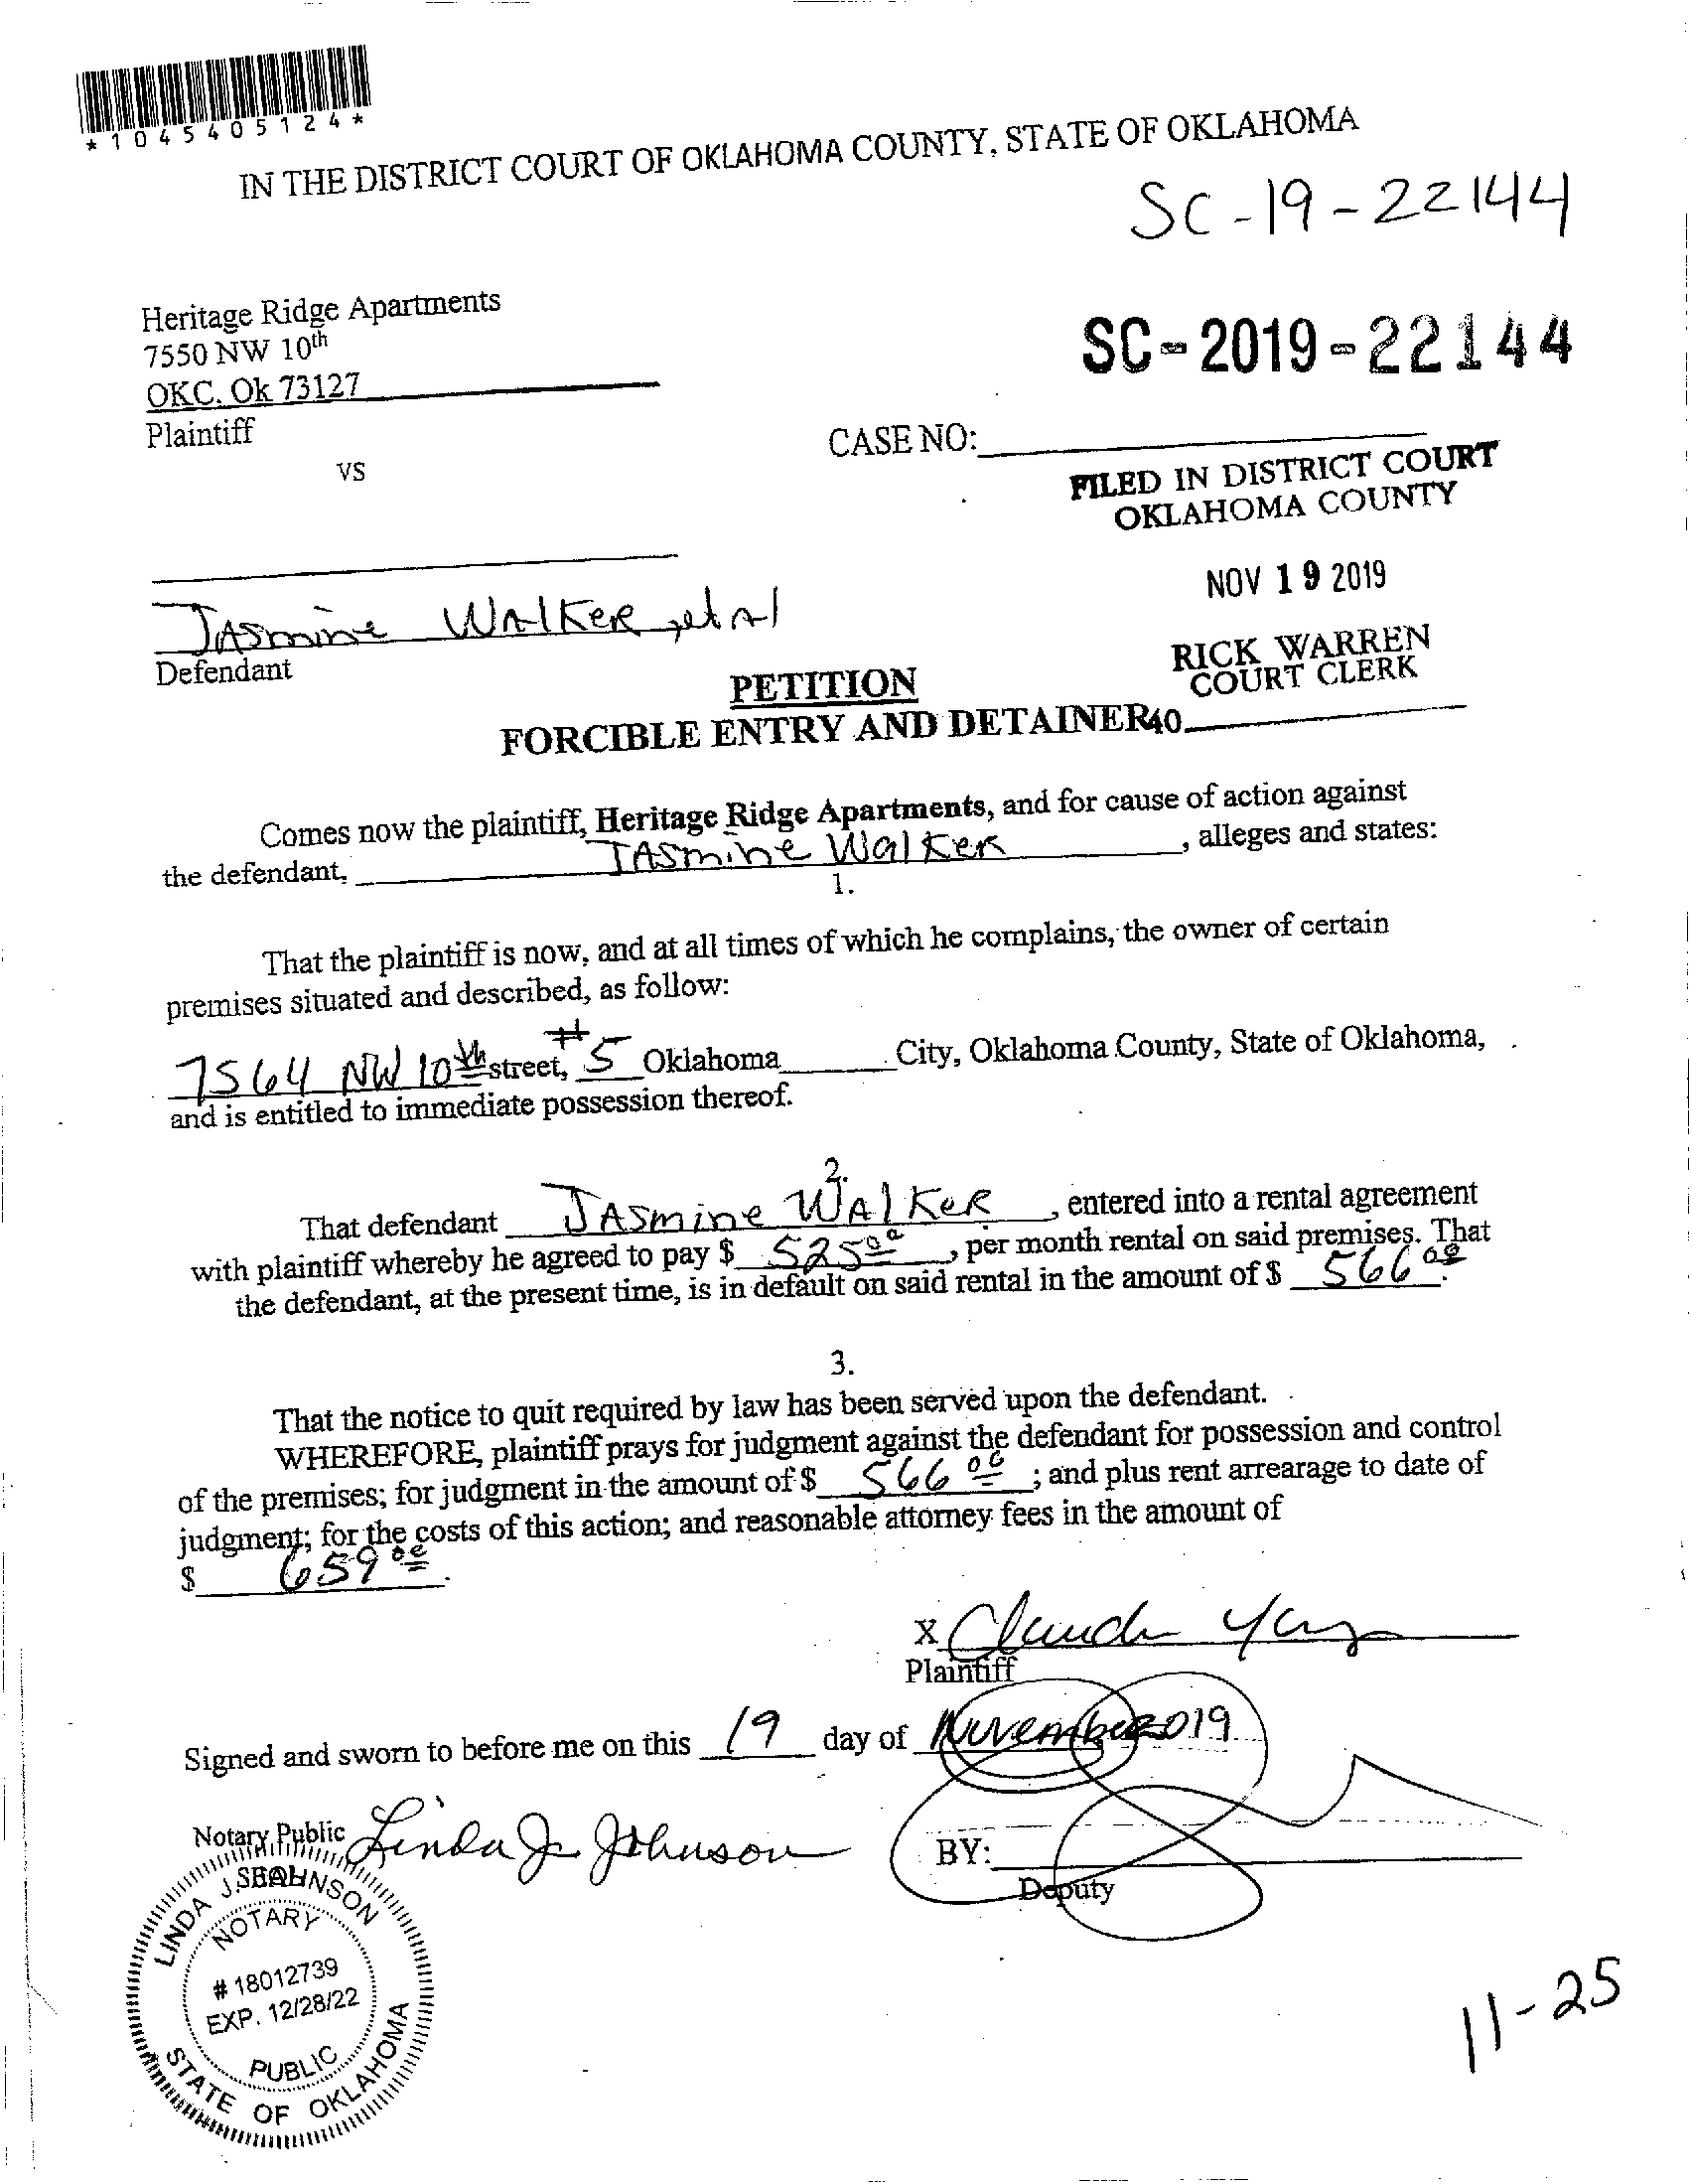 *1045405124*
IN THE DISTRICT COURT OF OKLAHOMA COUNTY, STATE OF OKLAHOMA
SC-19-22144
Heritage Ridge Apartments
7550 NW 10th
OKC. Ok 73127
Plaintiff
SC-2019-22144
CASE NO:
VS
FILED IN DISTRICT COURT
OKLAHOMA COUNTY
NOV 19 2019
JASmine WAlKeR, et Al
Defendant
RICK WARREN
COURT CLERK
PETITION
FORCIBLE ENTRY AND DETAINER
40
Comes now the plaintiff, Heritage Ridge Apartments, and for cause of action against
the defendant, JASmine WalKer, alleges and states:
1.
That the plaintiff is now, and at all times of which he complains, the owner of certain
premises situated and described, as follow:
7564 NW 10th street, #5 Oklahoma City, Oklahoma County, State of Oklahoma,
and is entitled to immediate possession thereof.
2.
That defendant JASmine WAlKeR, entered into a rental agreement
with plaintiff whereby he agreed to pay $ 525 00, per month rental on said premises. That
the defendant, at the present time, is in default on said rental in the amount of $ 566 00.
3.
That the notice to quit required by law has been served upon the defendant.
WHEREFORE, plaintiff prays for judgment against the defendant for possession and control
of the premises; for judgment in the amount of $ 566 00; and plus rent arrearage to date of
judgment; for the costs of this action; and reasonable attorney fees in the amount of
$ 659 00.
X Claudia
Plaintiff
Signed and sworn to before me on this 19 day of November 2019
Notary Public Linda J. Johnson
BY:
Deputy
SEAL
LINDA J. JOHNSON
NOTARY
# 18012739
EXP. 12/28/22
PUBLIC
STATE OF OKLAHOMA
11-25